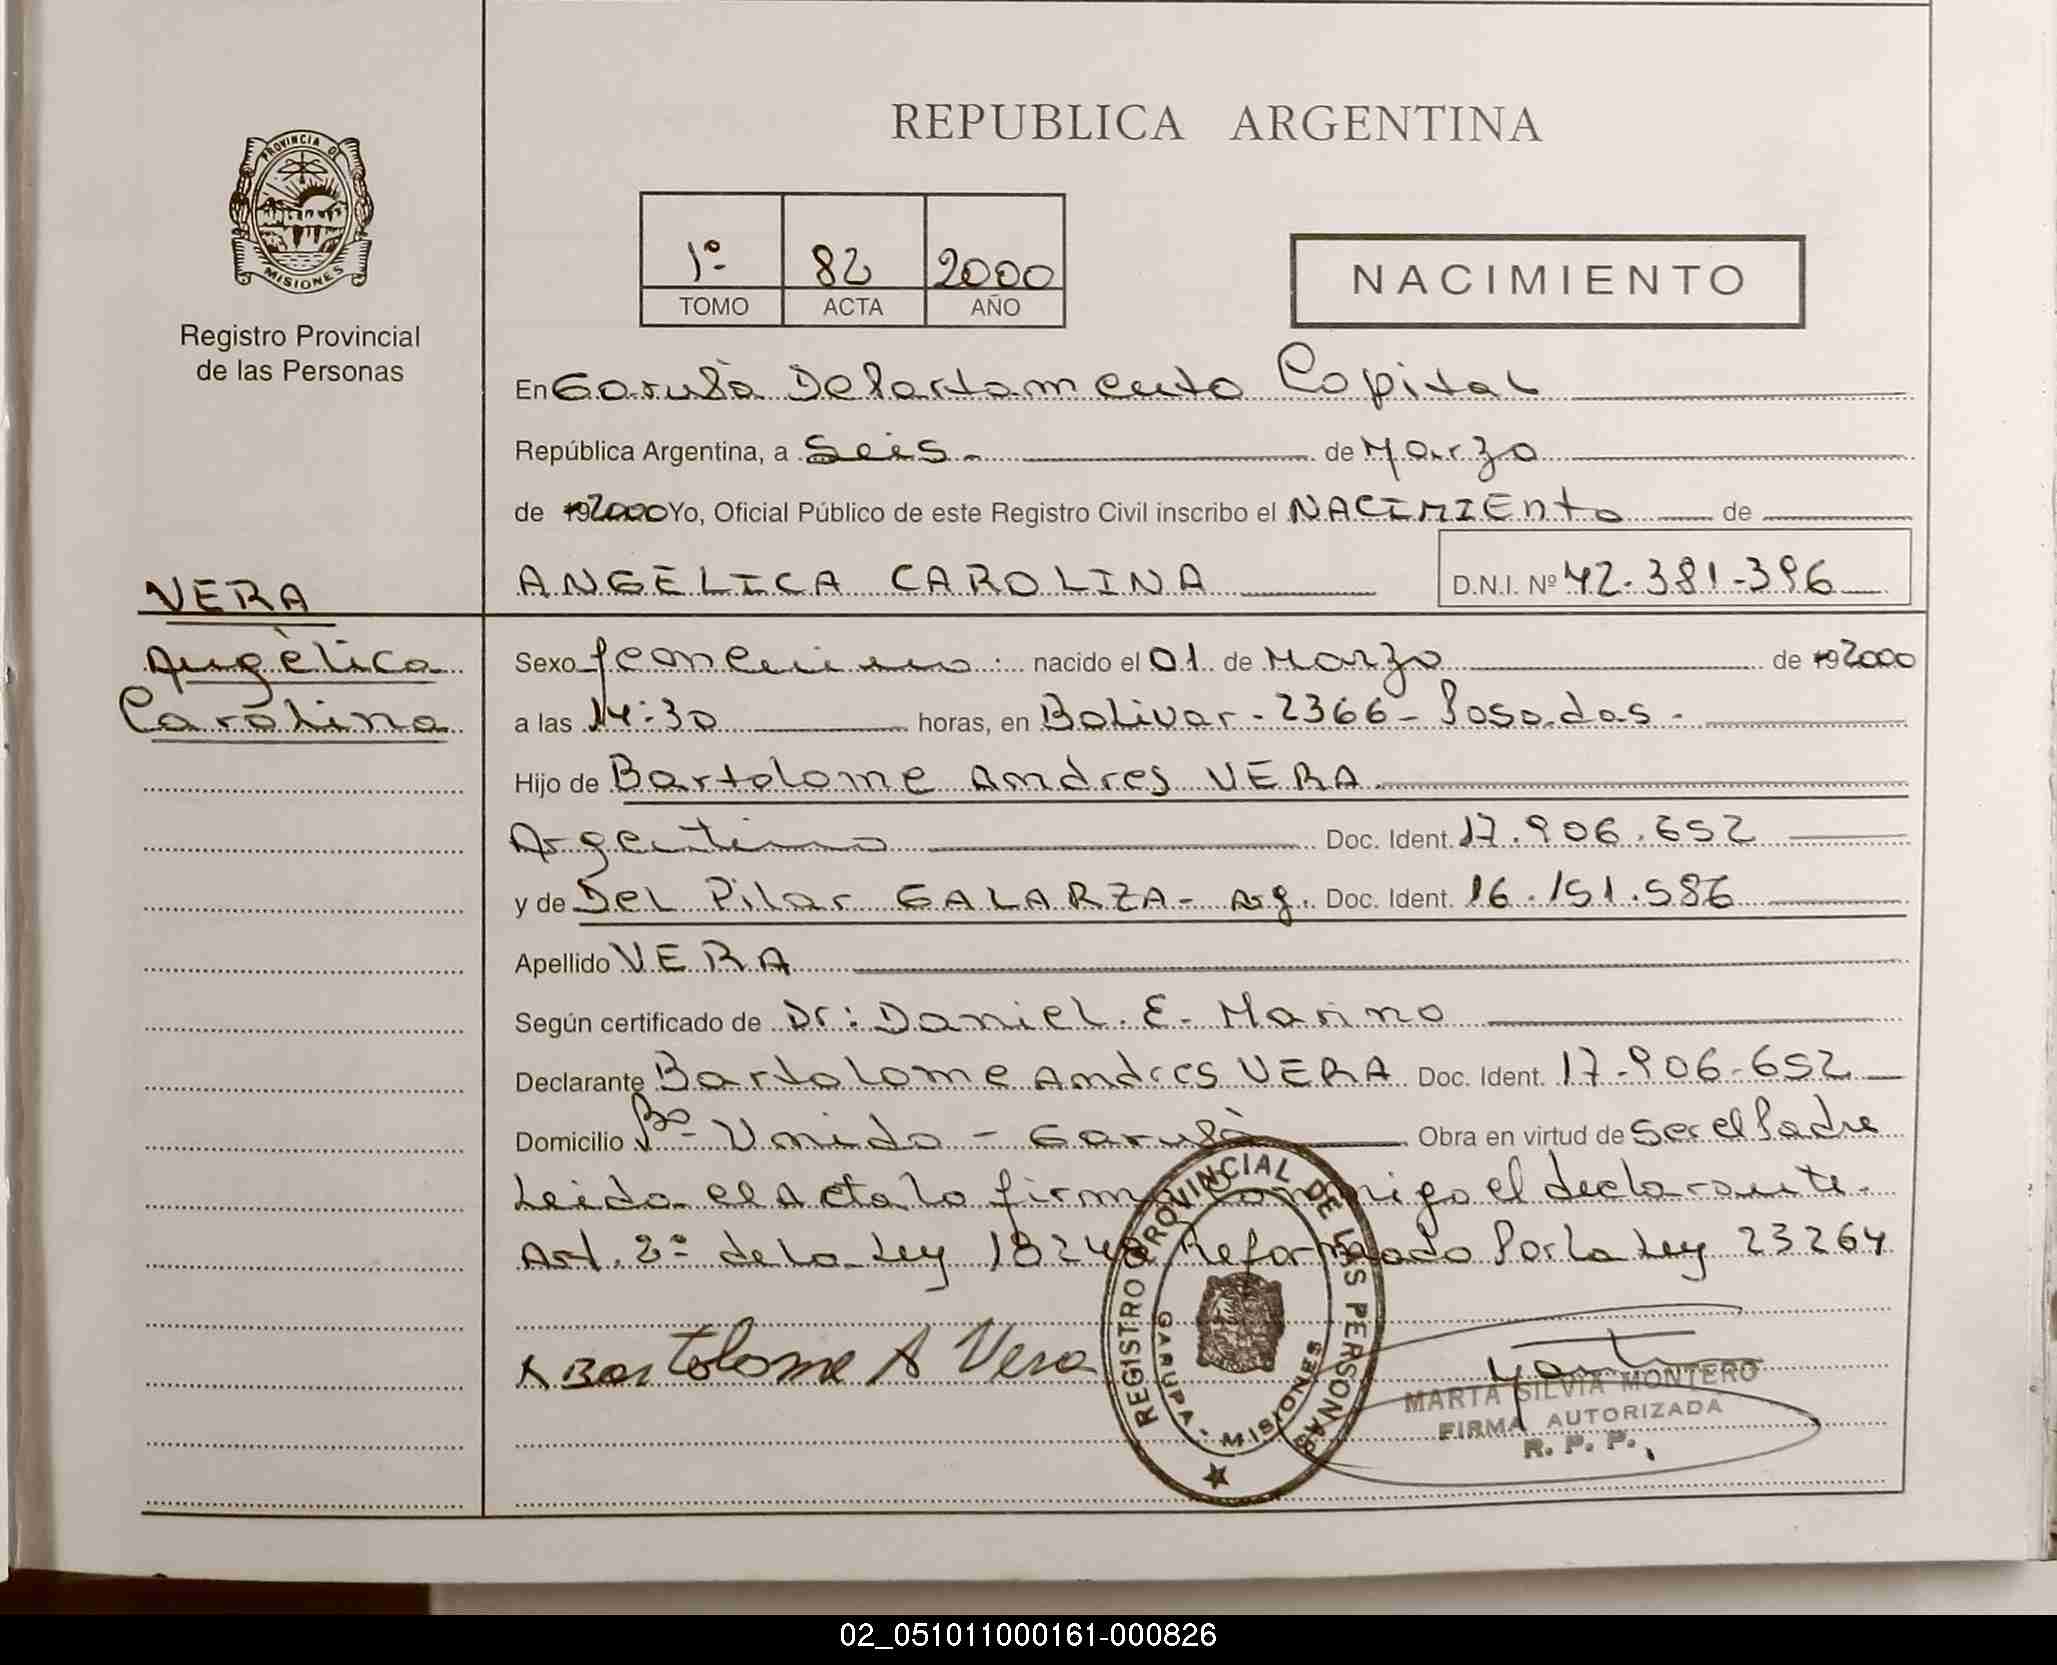 REPUBLICA ARGENTINA
PROVINCIA DE
MISIONES
Registro Provincial
de las Personas
1º 82 2000
TOMO ACTA AÑO
NACIMIENTO
En Garupà Departamento Capital
República Argentina, a Seis.- de Marzo
de 192000 Yo, Oficial Público de este Registro Civil inscribo el NACIMIENto de
ANGÈLICA CAROLINA D.N.I. Nº 42.381.396
VERA
Angèlica
Carolina
Sexo femenino. nacido el 01 de Marzo de 192000
a las 14:30 horas, en Bolivar - 2366 - Posadas -
Hijo de Bartolome Andres VERA
Argentino Doc. Ident. 17.906.652
y de Del Pilar GALARZA - Arg. Doc. Ident. 16.151.586
Apellido VERA
Según certificado de Dr: Daniel. E. Marino
Declarante Bartolome Andres VERA Doc. Ident. 17.906.652
Domicilio Bº Unido - Garupà Obra en virtud de Ser el Padre
Leida el Acta la firma conmigo el declarante.
Art. 2º de la Ley 18248 Reformado Por la Ley 23264
x Bartolome A Vera
REGISTRO PROVINCIAL DE LAS PERSONAS
GARUPA - MISIONES
MARTA SILVIA MONTERO
FIRMA AUTORIZADA
R. P. P.
02_051011000161-000826